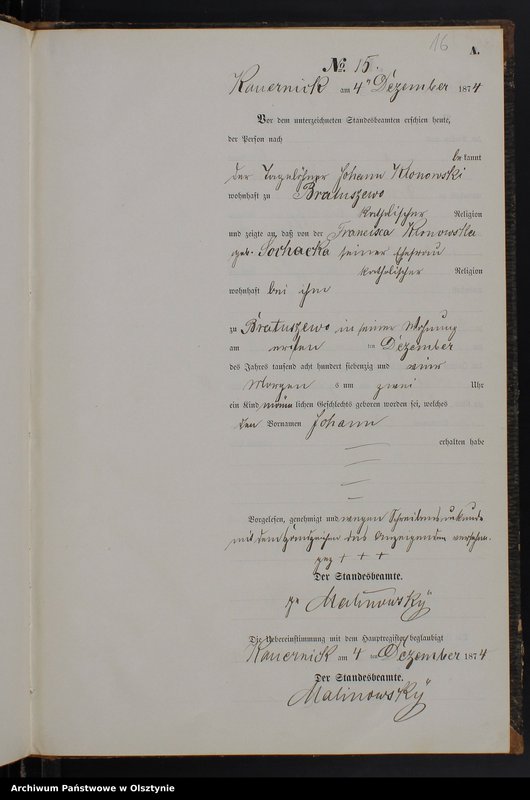 16
A.
№ 15.
Kauernick am 4ten Dezember 1874
Vor dem unterzeichneten Standesbeamten erschien heute,
der Person nach
bekannt
der Tagelöhner Johann Klonowski
wohnhaft zu Bratuszewo
katholischer Religion
und zeigte an, daß von der Francisca Klonowska
geb. Sochacka seiner Ehefrau
katholischer Religion
wohnhaft bei ihm
zu Bratuszewo in seiner Wohnung
am ersten ten Dezember
des Jahres tausend acht hundert siebenzig und vier
Morgens um zwei Uhr
ein Kind männlichen Geschlechts geboren worden sei, welches
den Vornamen Johann
erhalten habe
Vorgelesen, genehmigt und wegen Schreibensunkunde
mit dem Handzeichen des Anzeigenden versehen.
gez + + +
Der Standesbeamte.
gz Malinowsky
Die Uebereinstimmung mit dem Hauptregister beglaubigt
Kauernick am 4 ten Dezember 1874
Der Standesbeamte.
Malinowsky
Archiwum Państwowe w Olsztynie